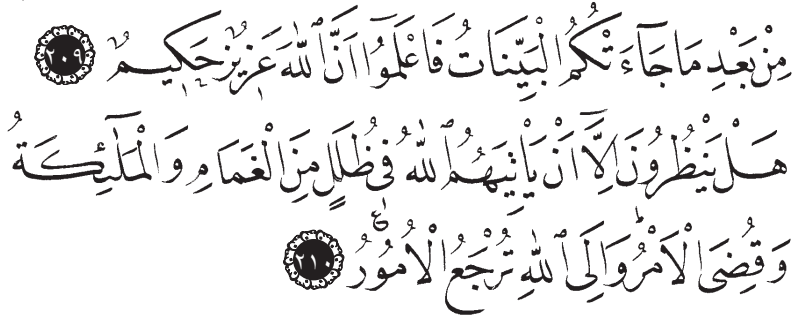 مِنْ بَعْدِ مَا جَآءَ تْكُمُ الْبَيِّنَاتُ فَاعْلَمُوْٓا اَنَّ ٱللّٰهَ عَزِيْزٌ حَكِيْمٌ ٢٠٩
هَلْ يَنْظُرُوْنَ اِلَّآ اَنْ يَأْتِيَهُمُ ٱللّٰهُ فِىْ ظُلَلٍ مِنَ الْغَمَامِ وَالْمَلٰٓئِكَةُ
وَقُضِىَ الْاَمْرُ وَاِلَى ٱللّٰهِ تُرْجَعُ الْاُمُوْرُ ٢١٠